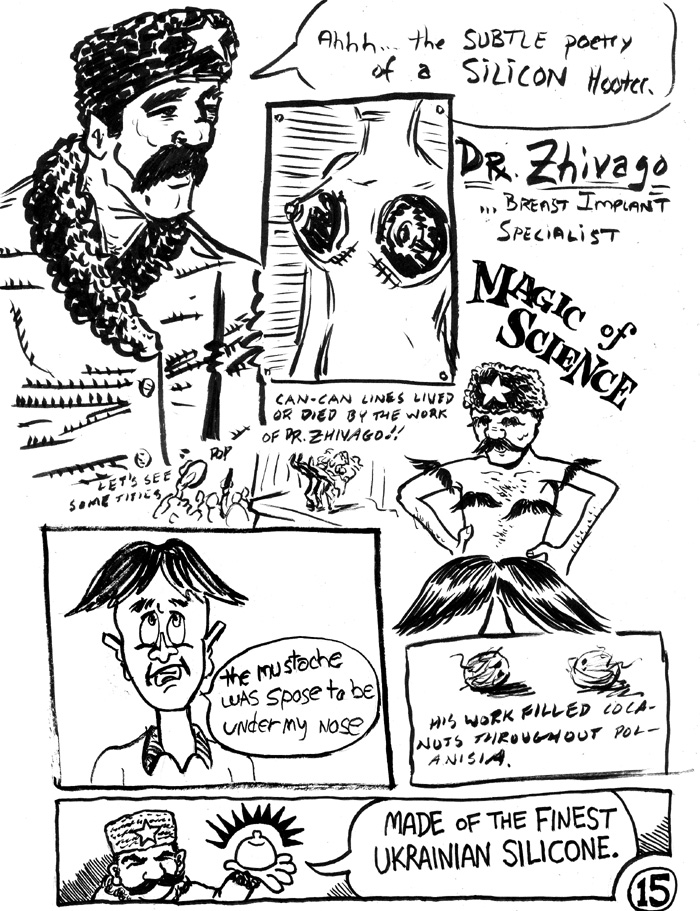 Ahhh... the SUBTLE poetry
of a SILICON Hooter.
DR. Zhivago
... BREAST IMPLANT
SPECIALIST
MAGIC of
SCIENCE
CAN-CAN LINES LIVED
OR DIED BY THE WORK
OF DR. ZHIVAGO!!
POP
LET'S SEE
SOME TITIES
the mustache
was spose to be
under my nose
HIS WORK FILLED COCA-
NUTS THROUGHOUT POL-
ANISIA.
MADE OF THE FINEST
UKRAINIAN SILICONE.
15